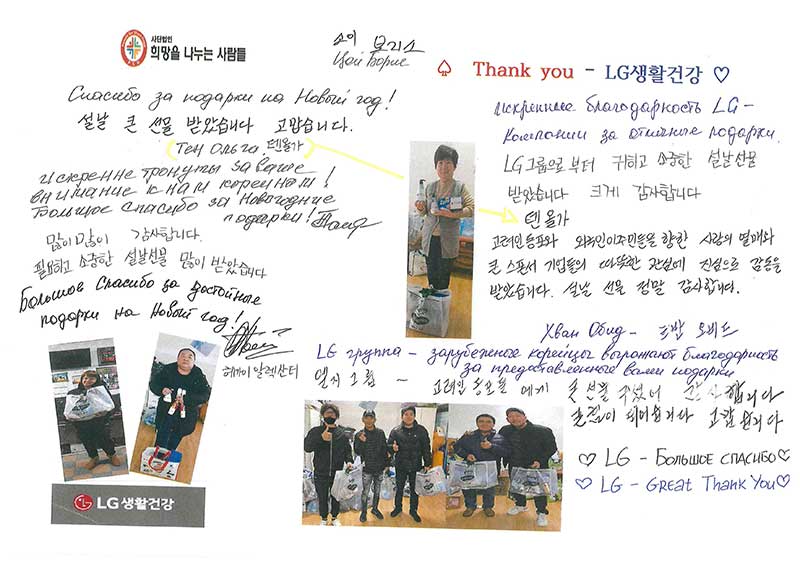 사단법인
희망을 나누는 사람들
쪼이 보리스
Цой Борис
♤ Thank you - LG생활건강 ♡
Спасибо за подарки на Новый год!
설날 큰 선물 받았습니다 고맙습니다.
(Тен Ольга, 텐올가)
искренне тронуты за ваше
внимание к нам корейцам!
Большое спасибо за Новогодние
подарки!
많이많이 감사합니다.
필요하고 소중한 설날선물 많이 받았습니다
Большое Спасибо за достойные
подарки на Новый год!
알렉산더
искренние благодарность LG-
компании за отличные подарки.
LG그룹으로부터 귀하고 소중한 설날선물
받았습니다 크게 감사합니다
텐 올가
고려인동포와 외국인이주민들을 향한 사랑의 열매와
큰 스폰서 기업들의 따뜻한 관심에 진심으로 감동을
받았습니다. 설날 선물 정말 감사합니다.
Хван Овид - 흐반 오비드
LG группа - зарубежные корейцы выражают благодарность
за предоставленные вами подарки
엘지 그룹 - 고려인 동포들에게 큰 선물 주셨어 감사합니다
도움이 되어습니다 고맙습니다
♡ LG - Большое спасибо ♡
♡ LG - Great Thank You ♡
LG생활건강